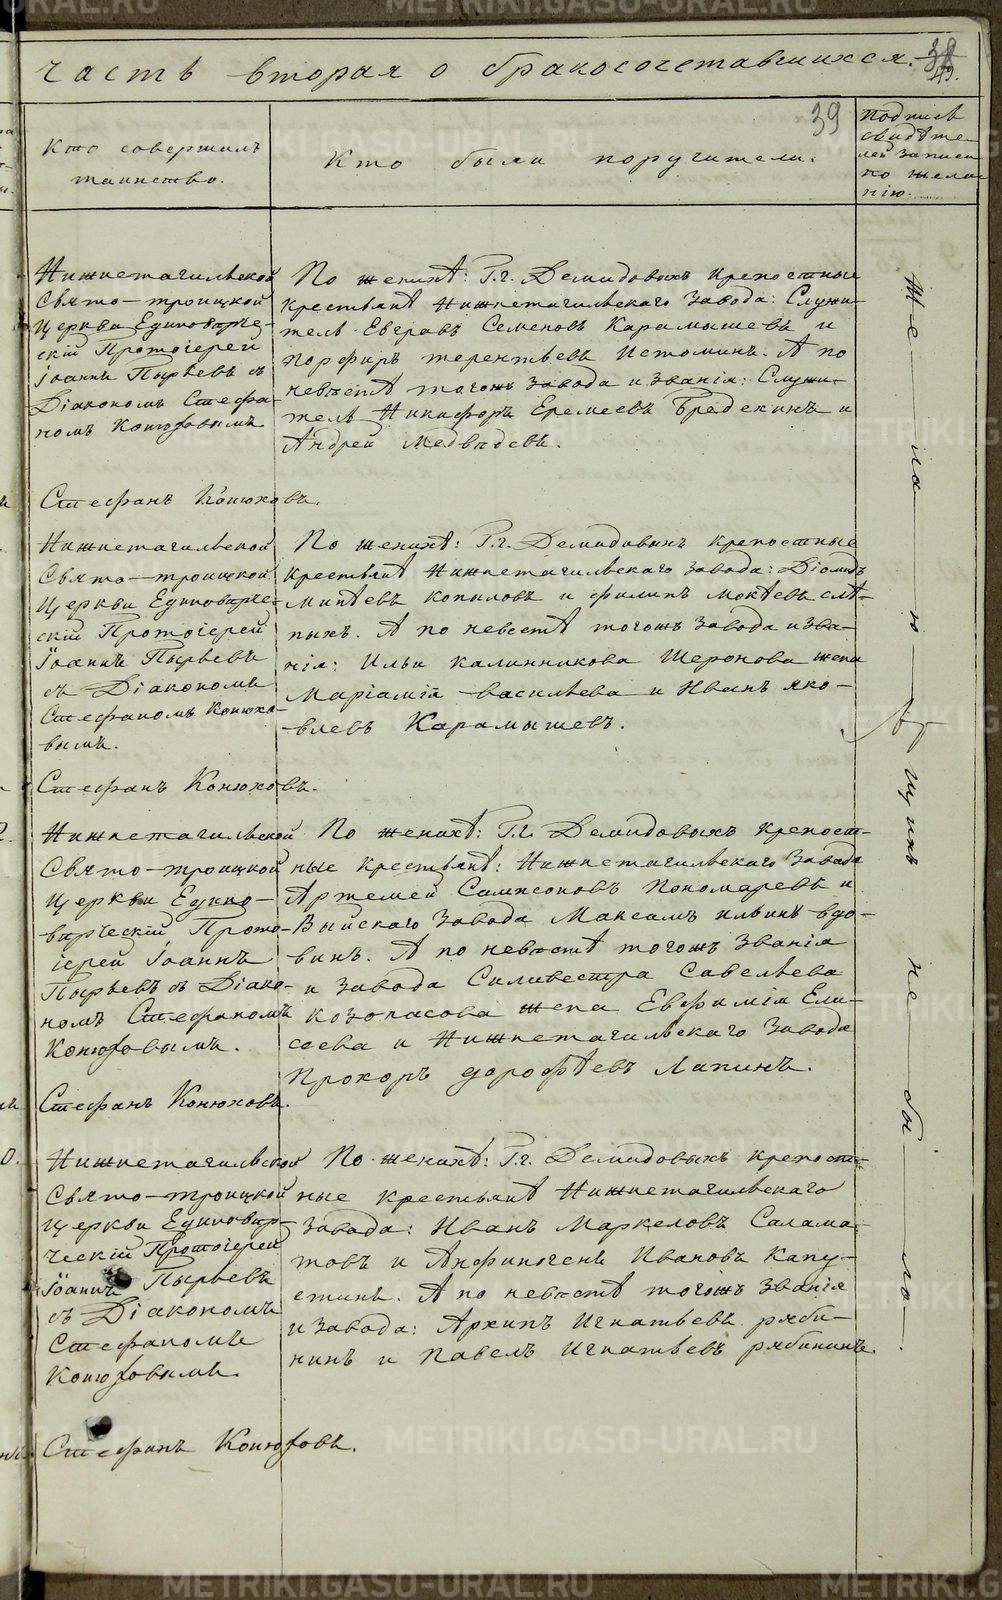 часть вторая о бракосочетавшихся.
39
Кто совершилъ
таинство.
Кто были поручители.
подпись
свидѣте-
лей записи
по жела-
нію.
Нижнетагильской
Свято-троицкой
Церкви Единовѣрче-
скій Протоіерей
Іоаннъ Пырьевъ съ
Діакономъ Стефа-
номъ Конюховымъ
Стефанъ Конюховъ.
По женихѣ: Г.г. Демидовыхъ крепостные
крестьянѣ Нижнетагильскаго Завода: Служи-
тель Евграфъ Семеновъ Карамышевъ и
порфиръ терентьевъ Истоминъ. А по
невѣстѣ тогожъ завода и званія: Служи-
тель Никифоръ Еремеевъ Бредехинъ и
Андрей Медвѣдевъ.
Нижнетагильской
Свято-троицкой
Церкви Единовѣрче-
скій Протоіерей
Іоаннъ Пырьевъ
съ Діакономъ
Стефаномъ Конюхо-
вымъ.
Стефанъ Конюховъ.
По женихѣ: Г.г. Демидовыхъ крепостные
крестьянѣ Нижнетагильскаго завода: Діомидъ
Минѣевъ копыловъ и филипъ Мокѣевъ слѣ-
пыхъ. А по невестѣ тогожъ завода и зва-
нія: Ильи калинникова Шеронова жена
Маріамія васильева и Иванъ яко-
влевъ Карамышевъ.
Нижнетагильской
Свято-троицкой
Церкви Едино-
вѣрческій Прото-
іерей Іоаннъ
Пырьевъ съ Діако-
номъ Стефаномъ
Конюховымъ.
Стефанъ Конюховъ.
По женихѣ: Г.г. Демидовыхъ крепост-
ные крестьянѣ: Нижнетагильскаго Завода
Артемей Сампсоновъ Пономаревъ и
Выйскаго Завода Максимъ ильинъ вдо-
винъ. А по невѣстѣ тогожъ Званія
и Завода Силивестра Савельева
козопасова жена Евфимія Ели-
сеева и Нижнетагильскаго Завода
Прохоръ дорофѣевъ Лапинъ.
Нижнетагильской
Свято-троицкой
Церкви Единовѣр-
ческій Протоіерей
Іоаннъ Пырьевъ
съ Діакономъ
Стефаномъ
Конюховымъ.
Стефанъ Конюховъ.
По женихѣ: Г.г. Демидовыхъ крепост-
ные крестьянѣ Нижнетагильскаго
завода: Иванъ Маркеловъ Салама-
товъ и Анфиногенъ Ивановъ Капу-
стинъ. А по невѣстѣ тогожъ званія
и завода: Архипъ Игнатьевъ ряби-
нинъ и Павелъ Игнатьевъ рябининъ.
Желающихъ не было.
METRIKI.GASO-URAL.RU